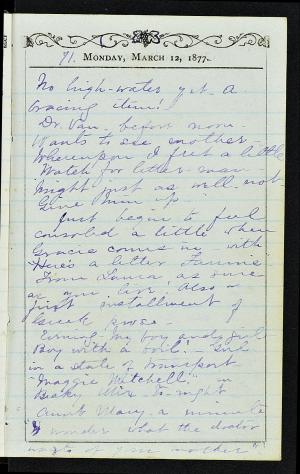 71.
MONDAY, MARCH 12, 1877.
No high-water yet. A
bracing item!
Dr. Van before noon
Wants to see mother-
Whereupon I fret a little
Watch for letter-man
might just as well not-
Give him up
Just begin to feel
consoled a little when
Gracie comes in with
"Here's a letter Fannie
From Laura as sure
as you live! Also a
first installment of
Greek prose-
Evening My boy and girl
Boy with a boil! Girl
in a state of transport
"Maggie Mitchell" in
Becky Mix To-night
Aunt Mary a minute
I wonder what the doctor
wants of your mother"